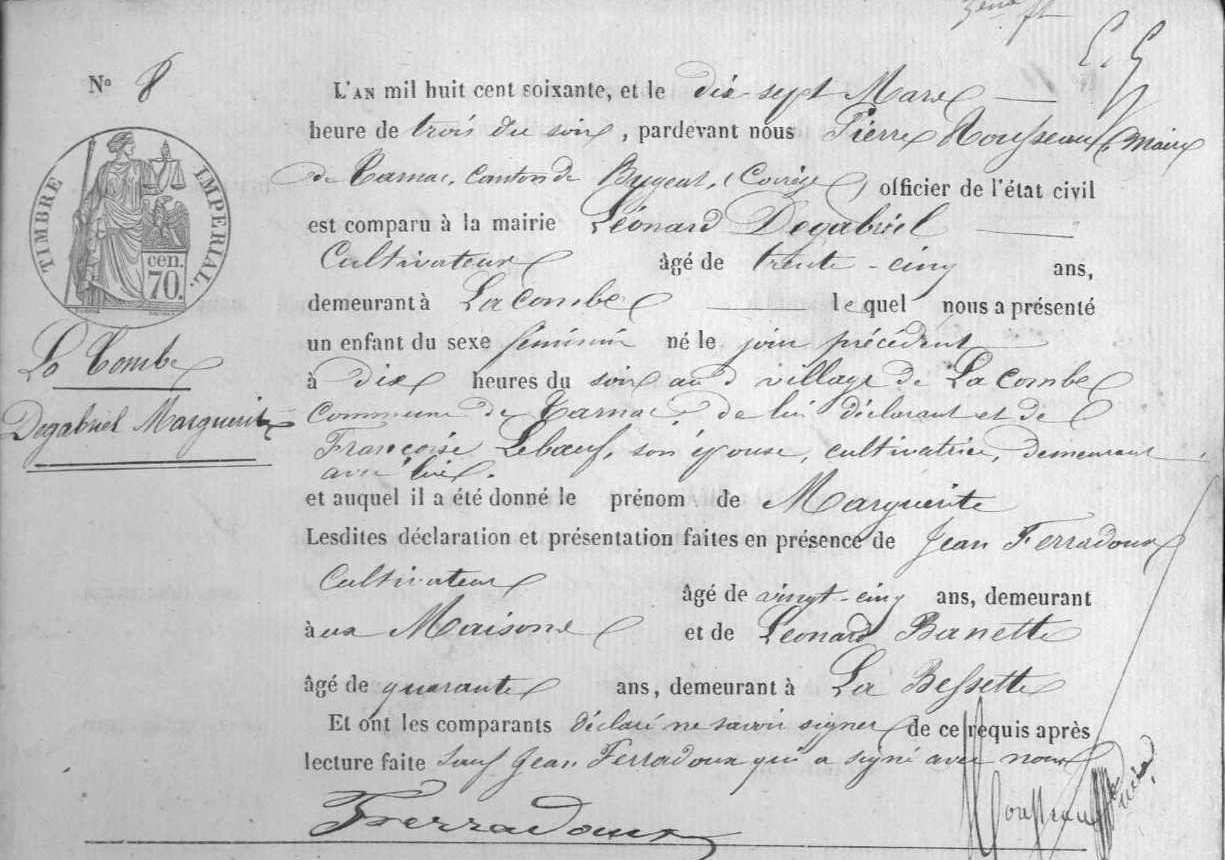 N° 8
L'AN mil huit cent soixante, et le dix sept Mars
heure de trois du soir, pardevant nous Pierre Rousseau, maire
de Tarnac, Canton de Bugeat, (Corrèze), officier de l'état civil
est comparu à la mairie Léonard Degabriel
Cultivateur âgé de trente-cinq ans,
demeurant à Lacombe lequel nous a présenté
un enfant du sexe féminin né le jour précédent
à dix heures du soir au d village de Lacombe
Commune de Tarnac de lui déclarant et de
Françoise Lebœuf, son épouse, cultivatrice, demeurant
avec lui.
et auquel il a été donné le prénom de Marguerite
Lesdites déclaration et présentation faites en présence de Jean Ferradoux
Cultivateur âgé de vingt-cinq ans, demeurant
à aux Maisons et de Léonard Banette
âgé de quarante ans, demeurant à La Bessette
Et ont les comparants déclaré ne savoir signer de ce requis après
lecture faite sauf Jean Ferradoux qui a signé avec nous
Ferradoux
Rousseau
TIMBRE IMPERIAL.
cen.
70.
La Combe
Degabriel Marguerite